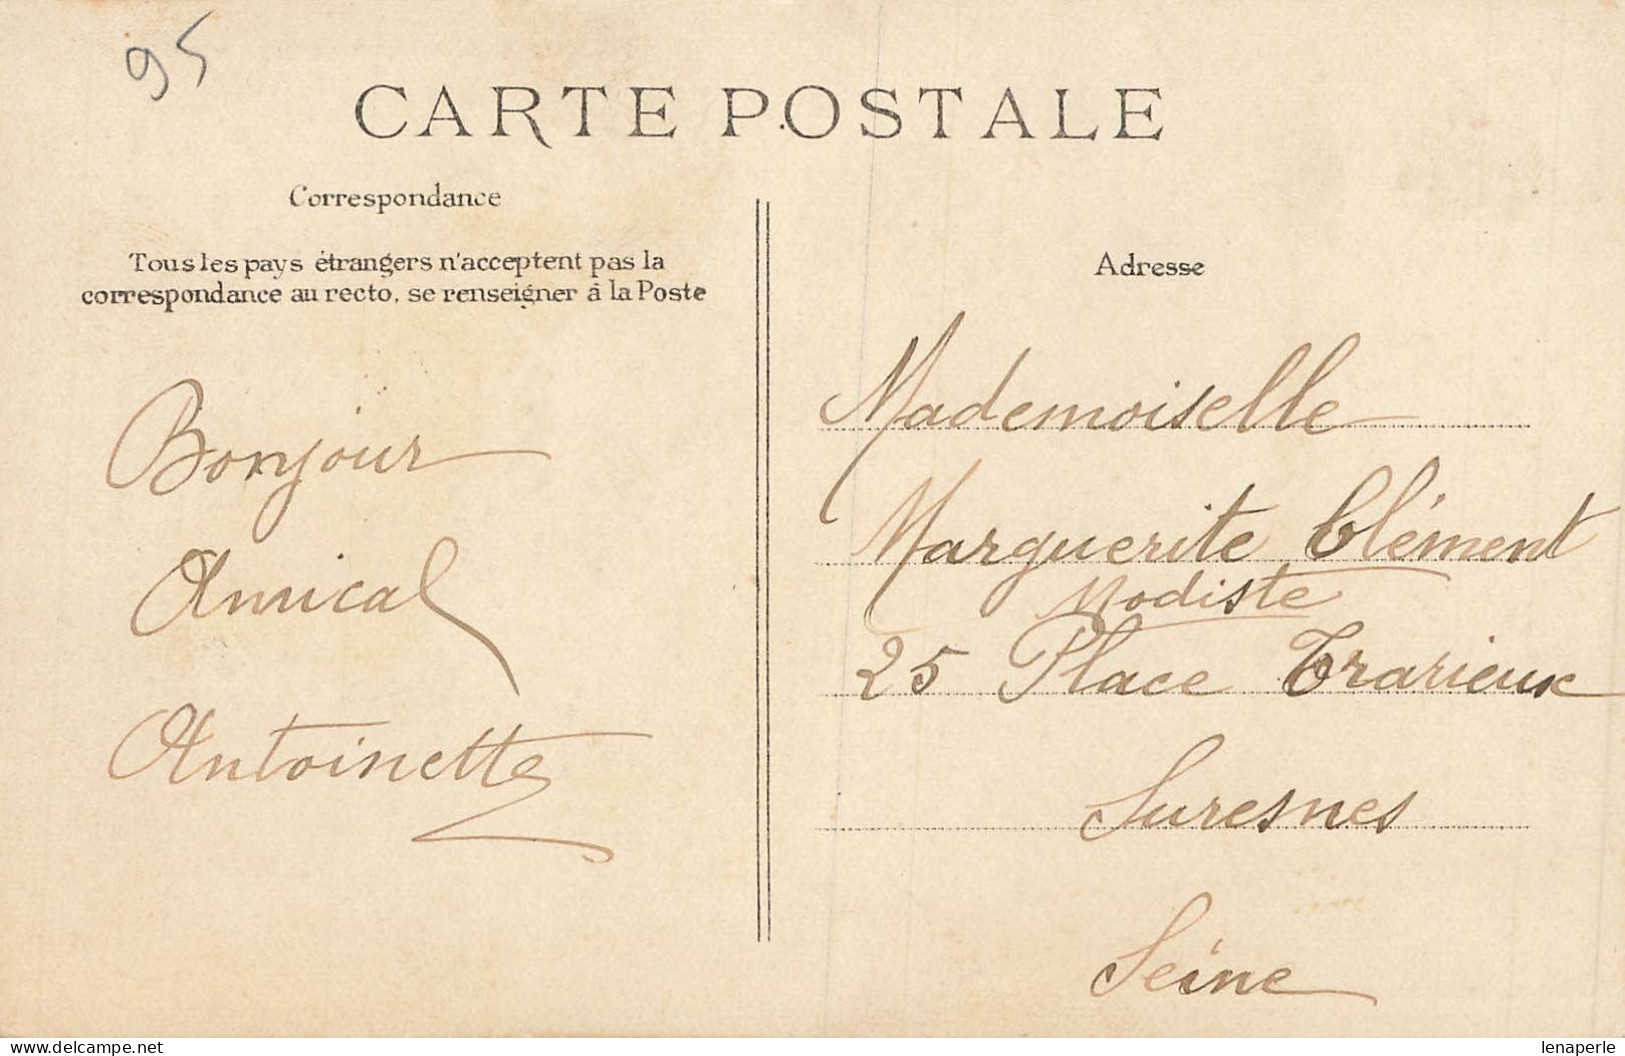 95
CARTE POSTALE
Correspondance
Tous les pays étrangers n'acceptent pas la
correspondance au recto, se renseigner à la Poste
Bonjour
Amical
Antoinette
Adresse
Mademoiselle
Marguerite Clément
Modiste
25 Place Trarieux
Suresnes
Seine
www.delcampe.net
lenaperle